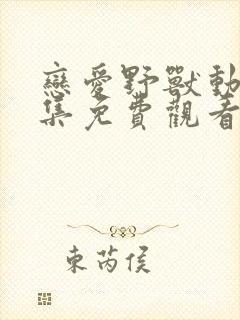 戀愛野獸動
集免費觀看
東芮侯